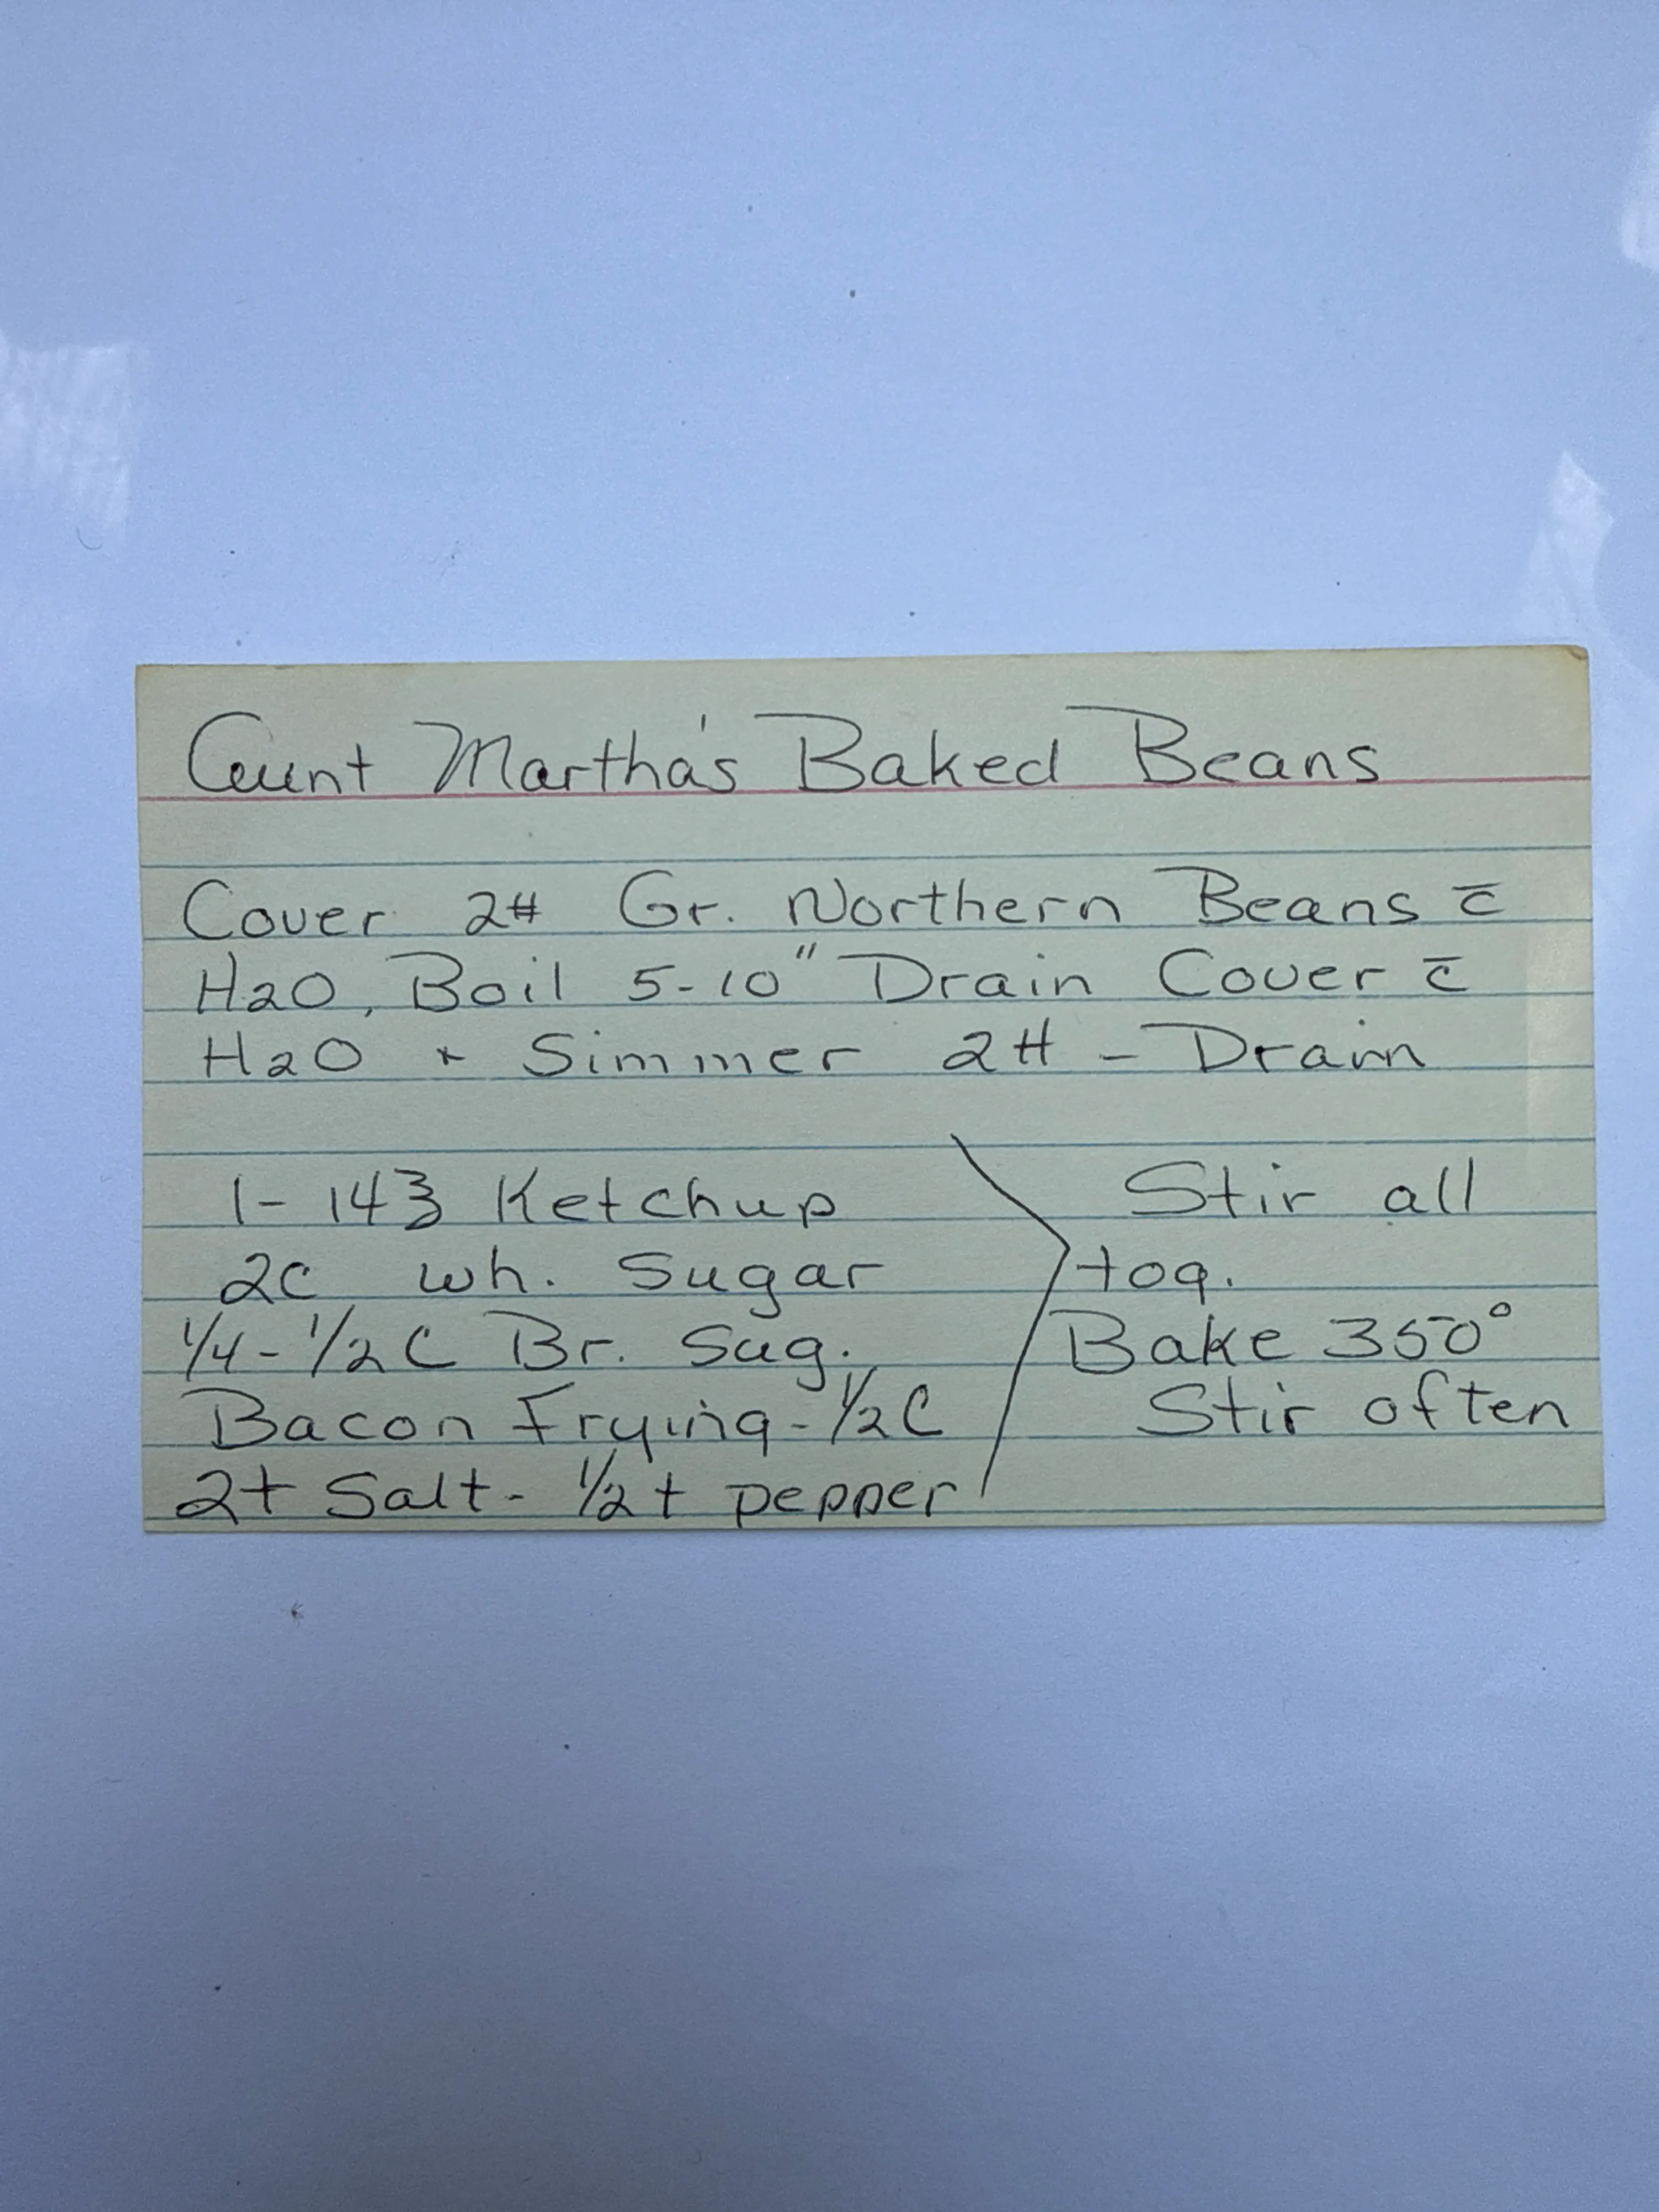 Aunt Martha's Baked Beans
Cover 2# Gr. Northern Beans c̄
H2O, Boil 5-10" Drain Cover c̄
H2O + Simmer 2H - Drain
1- 14℥ Ketchup
2c wh. Sugar
1/4-1/2 C Br. Sug.
Bacon Frying - 1/2 C
2t Salt - 1/2 t pepper
Stir all
tog.
Bake 350°
Stir often